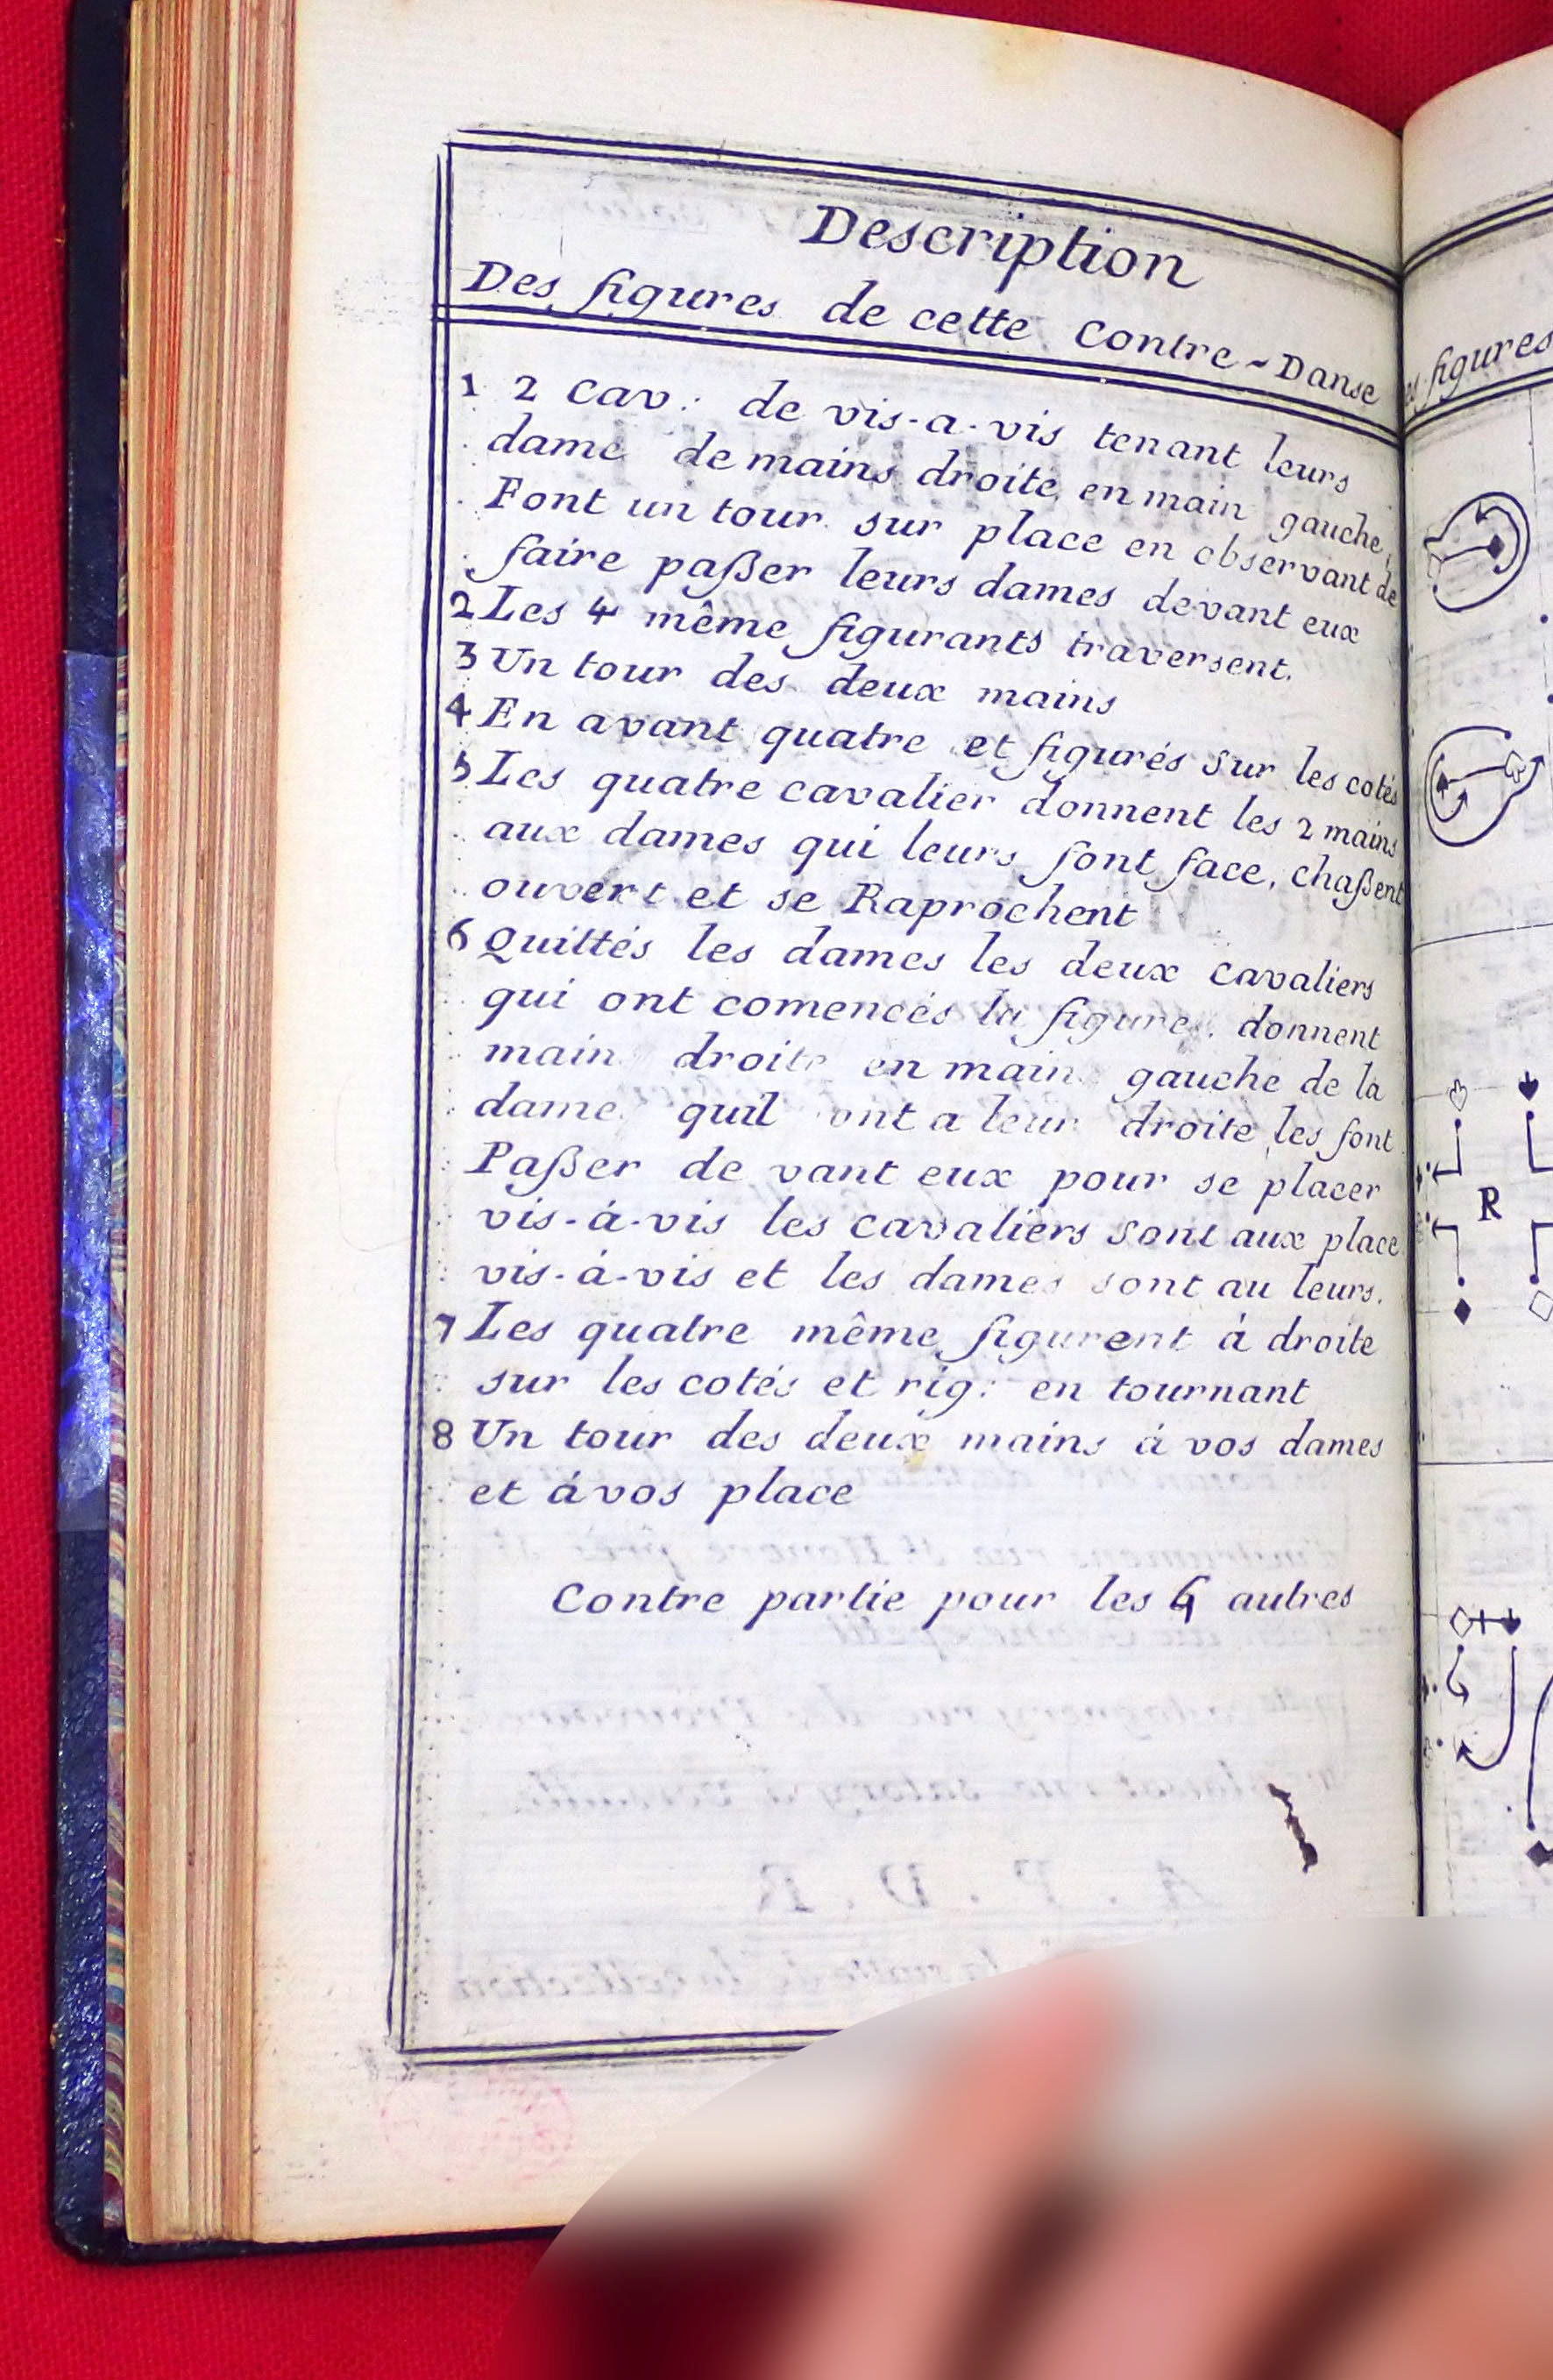 Description
Des figures de cette Contre-Danse
1 2 Cav: de vis-a-vis tenant leurs
dame de mains droite en main gauche,
Font un tour sur place en observant de
faire paßer leurs dames devant eux
2 Les 4 même figurants traversent.
3 Un tour des deux mains
4 En avant quatre et figurés sur les cotés
5 Les quatre cavalier donnent les 2 mains
aux dames qui leurs font face, chaßent
ouvert et se Raprochent
6 Quittés les dames les deux cavaliers
qui ont comencés la figure. donnent
main droite en main gauche de la
dame quil ont a leur droite les font
Paßer de vant eux pour se placer
vis-à-vis les cavaliers sont aux place
vis-à-vis et les dames sont au leurs.
7 Les quatre même figurent à droite
sur les cotés et rig: en tournant
8 Un tour des deux mains à vos dames
et à vos place
Contre partie pour les 4 autres
figures
R